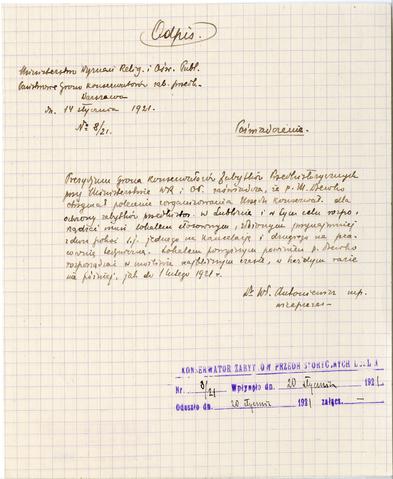 Odpis.
Ministerstwo Wyznań Relig. i Ośw. Publ.
Państwowe Grono Konserwatorów zab. przedh.
Warszawa
dn. 14 stycznia 1921.
Nº 8/21.
Poświadczenie.
Prezydjum Grona Konserwatorów Zabytków Przedhistorycznych
przy Ministerstwie WR i OP. zaświadcza, że p. M. Drewko
otrzymał polecenie zorganizowania Urzędu konserwat. dla
ochrony zabytków przedhistor. w Lublinie i w tym celu rozpo,
rządzać musi lokalem stosownym, złożonym przynajmniej
z dwu pokoi t.j. jednego na kancelarję i drugiego na pra,
cownię. Lokalem powyższym powinien p. Drewko
rozporządzać w możliwie najbliższym czasie, w każdym razie
nie później, jak do 1 lutego 1921 r.
Dr Wł. Antoniewicz mp.
wiceprezes
KONSERWATOR ZABYTKÓW PRZEDHISTORYCZNYCH
Nr. 8/21 Wpłynęło dn. 20 stycznia 1921
Odeszło dn. 20 stycznia 1921 załącz. —